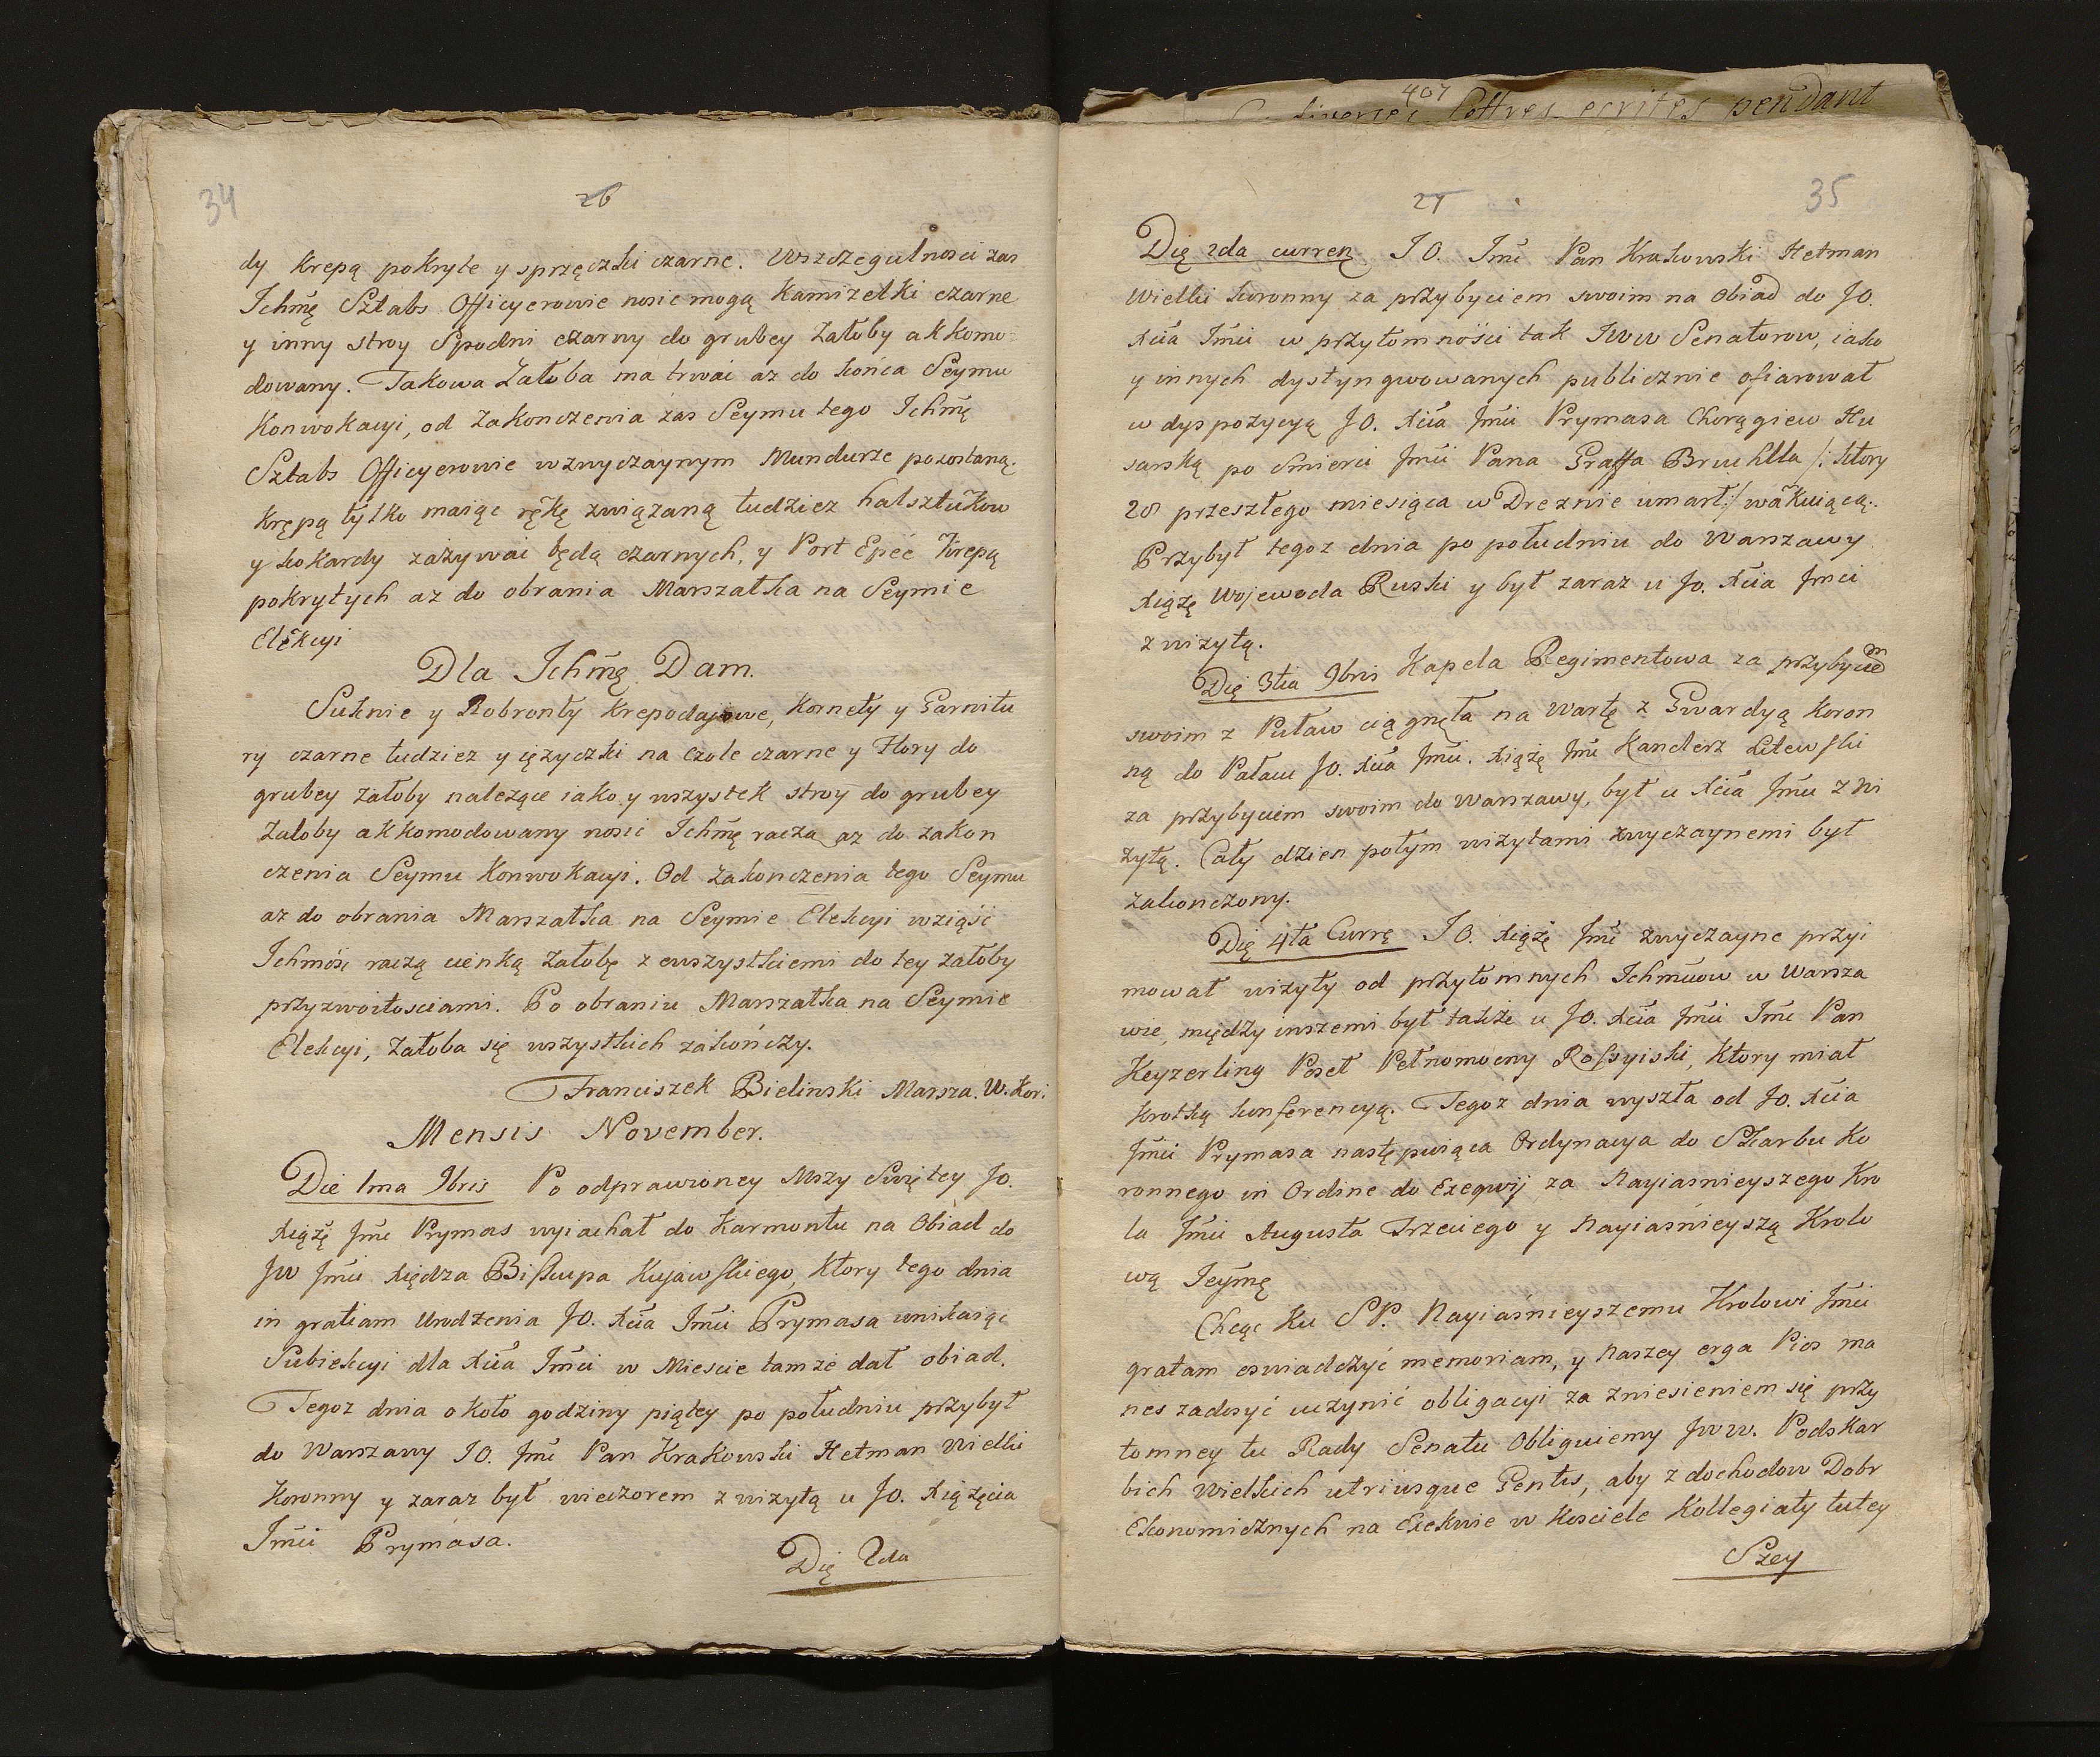 34
26
dy krepą pokryte y sprzęczki czarne. Wszczegulnosci zas
Ichmę Sztabs Officyerowie nosic mogą Kamizelki czarne
y inny stroy Spodni czarny do grubey Załoby akkomo-
dowany. Takowa Załoba ma trwai az do końca Seymu
Konwokacyi, od Zakonczenia zas Seymu tego Ichmę
Sztabs Officyerowie wzwyczaynym Mundurze pozostaną.
Krępą tylko maiąc rękę związaną tudziez halsztukow
y kokardy zażywai będą czarnych, y Port Epée Krepą
pokrytych az do obrania Marszałka na Seymie
Elekcyi
Dla Ichmę Dam.
Suknie y Robronty Krepodajowe, Kornety y Garnitu
ry czarne tudziez y ięzyczki na Czole czarne y Flory do
grubey załoby nalezące iako y wszystek stroy do grubey
Załoby akkomodowany nosić Ichmę racza az do zakon
czenia Seymu Konwokacyi. Od Zakonczenia tego Seymu
az do obrania Marszałka na Seymie Elekcyi wziąść
Ichmośc raczą cienką Załobę z ewszystkiemi do tey załoby
przyzwoitosciami. Po obraniu Marszałka na Seymie
Elekcyi, Załoba się wszystkich zakończy.
Franciszek Bielinski Marsza. W. Kor:
Mensis November.
Die 1ma 9bris Po odprawioney Mszy Swiętey JO.
Xiążę Jmć Prymas wyiachał do Karmontu na Obiad do
JW Jmći Xiędza Biskupa Kujawskiego, ktory tego dnia
in gratiam Urodzenia JO. Xcia Jmći Prymasa unikaiąc
Subiekcyi dla Xcia Jmći w Miescie tamże dał obiad.
Tegoz dnia około godziny piątey po południu przybył
do Warszawy JO. Jmć Pan Krakowski Hetman Wielki
Koronny y zaraz był wieczorem z wizytą u JO. Xiążęcia
Jmći Prymasa.
Dię 2da
407
Lettres ecrites pendant
27
35
Dię 2da curren JO. Jmć Pan Krakowski Hetman
Wielki koronny za przybyciem swoim na Obiad do JO.
Xcia Jmći w przytomności tak JWW Senatorow, iako
y innych dystyngwowanych publicznie ofiarował
w dyspozycyą JO. Xcia Jmći Prymasa Chorągiew Hu
sarską po Smierci Jmći Pana Graffa Bruchlla /: ktory
28 przeszłego miesiąca w Dreznie umarł:/ wakuiącą.
Przybył tegoz dnia po południu do Warszawy
Xiążę Wojewoda Ruski y był zaraz u JO. Xcia Jmci
z wizytą.
Dię 3tia 9bris Kapela Regimentowa za przybyciem
swoim z Puław ciągnęła na Wartę z Gwardyą Koron
ną do Pałacu JO. Xcia Jmći. Xiążę Jmć Kanclerz Litewski
za przybyciem swoim do Warszawy, był u Xcia Jmći z wi
zytą. Cały dzien potym wizytami zwyczaynemi był
zakonczony.
Dię 4ta Currę JO. Xiążę Jmć zwyczayne przyi
mował wizyty od przytomnych Ichmciow w Warsza
wie, między inszemi był także u JO. Xcia Jmći Jmć Pan
Keyzerling Poseł Pełnomocny Rossyiski, ktory miał
krotką konferencyą. Tegoz dnia wyszła od JO. Xcia
Jmći Prymasa następuiąca Ordynacya do Skarbu Ko
ronnego in Ordine do Exequij za Nayiasnieyszego Kro
la Jmći Augusta Trzeciego y Nayiaśnieyszą Krolo
wą Jeymę
Chcąc Ku SP. Nayiaśnieyszemu Krolowi Jmći
gratam oswiadczyć memoriam, y Naszey erga Pios ma
nes zadosyć uczynić obligacyi za zniesieniem się przy
tomney tu Rady Senatu Obliguiemy JWW. Podskar
bich Wielkich utriusque Gentis, aby z dochodow Dobr
Ekonomicznych na Exekwie w Kosciele Kollegiaty tutey
Szey